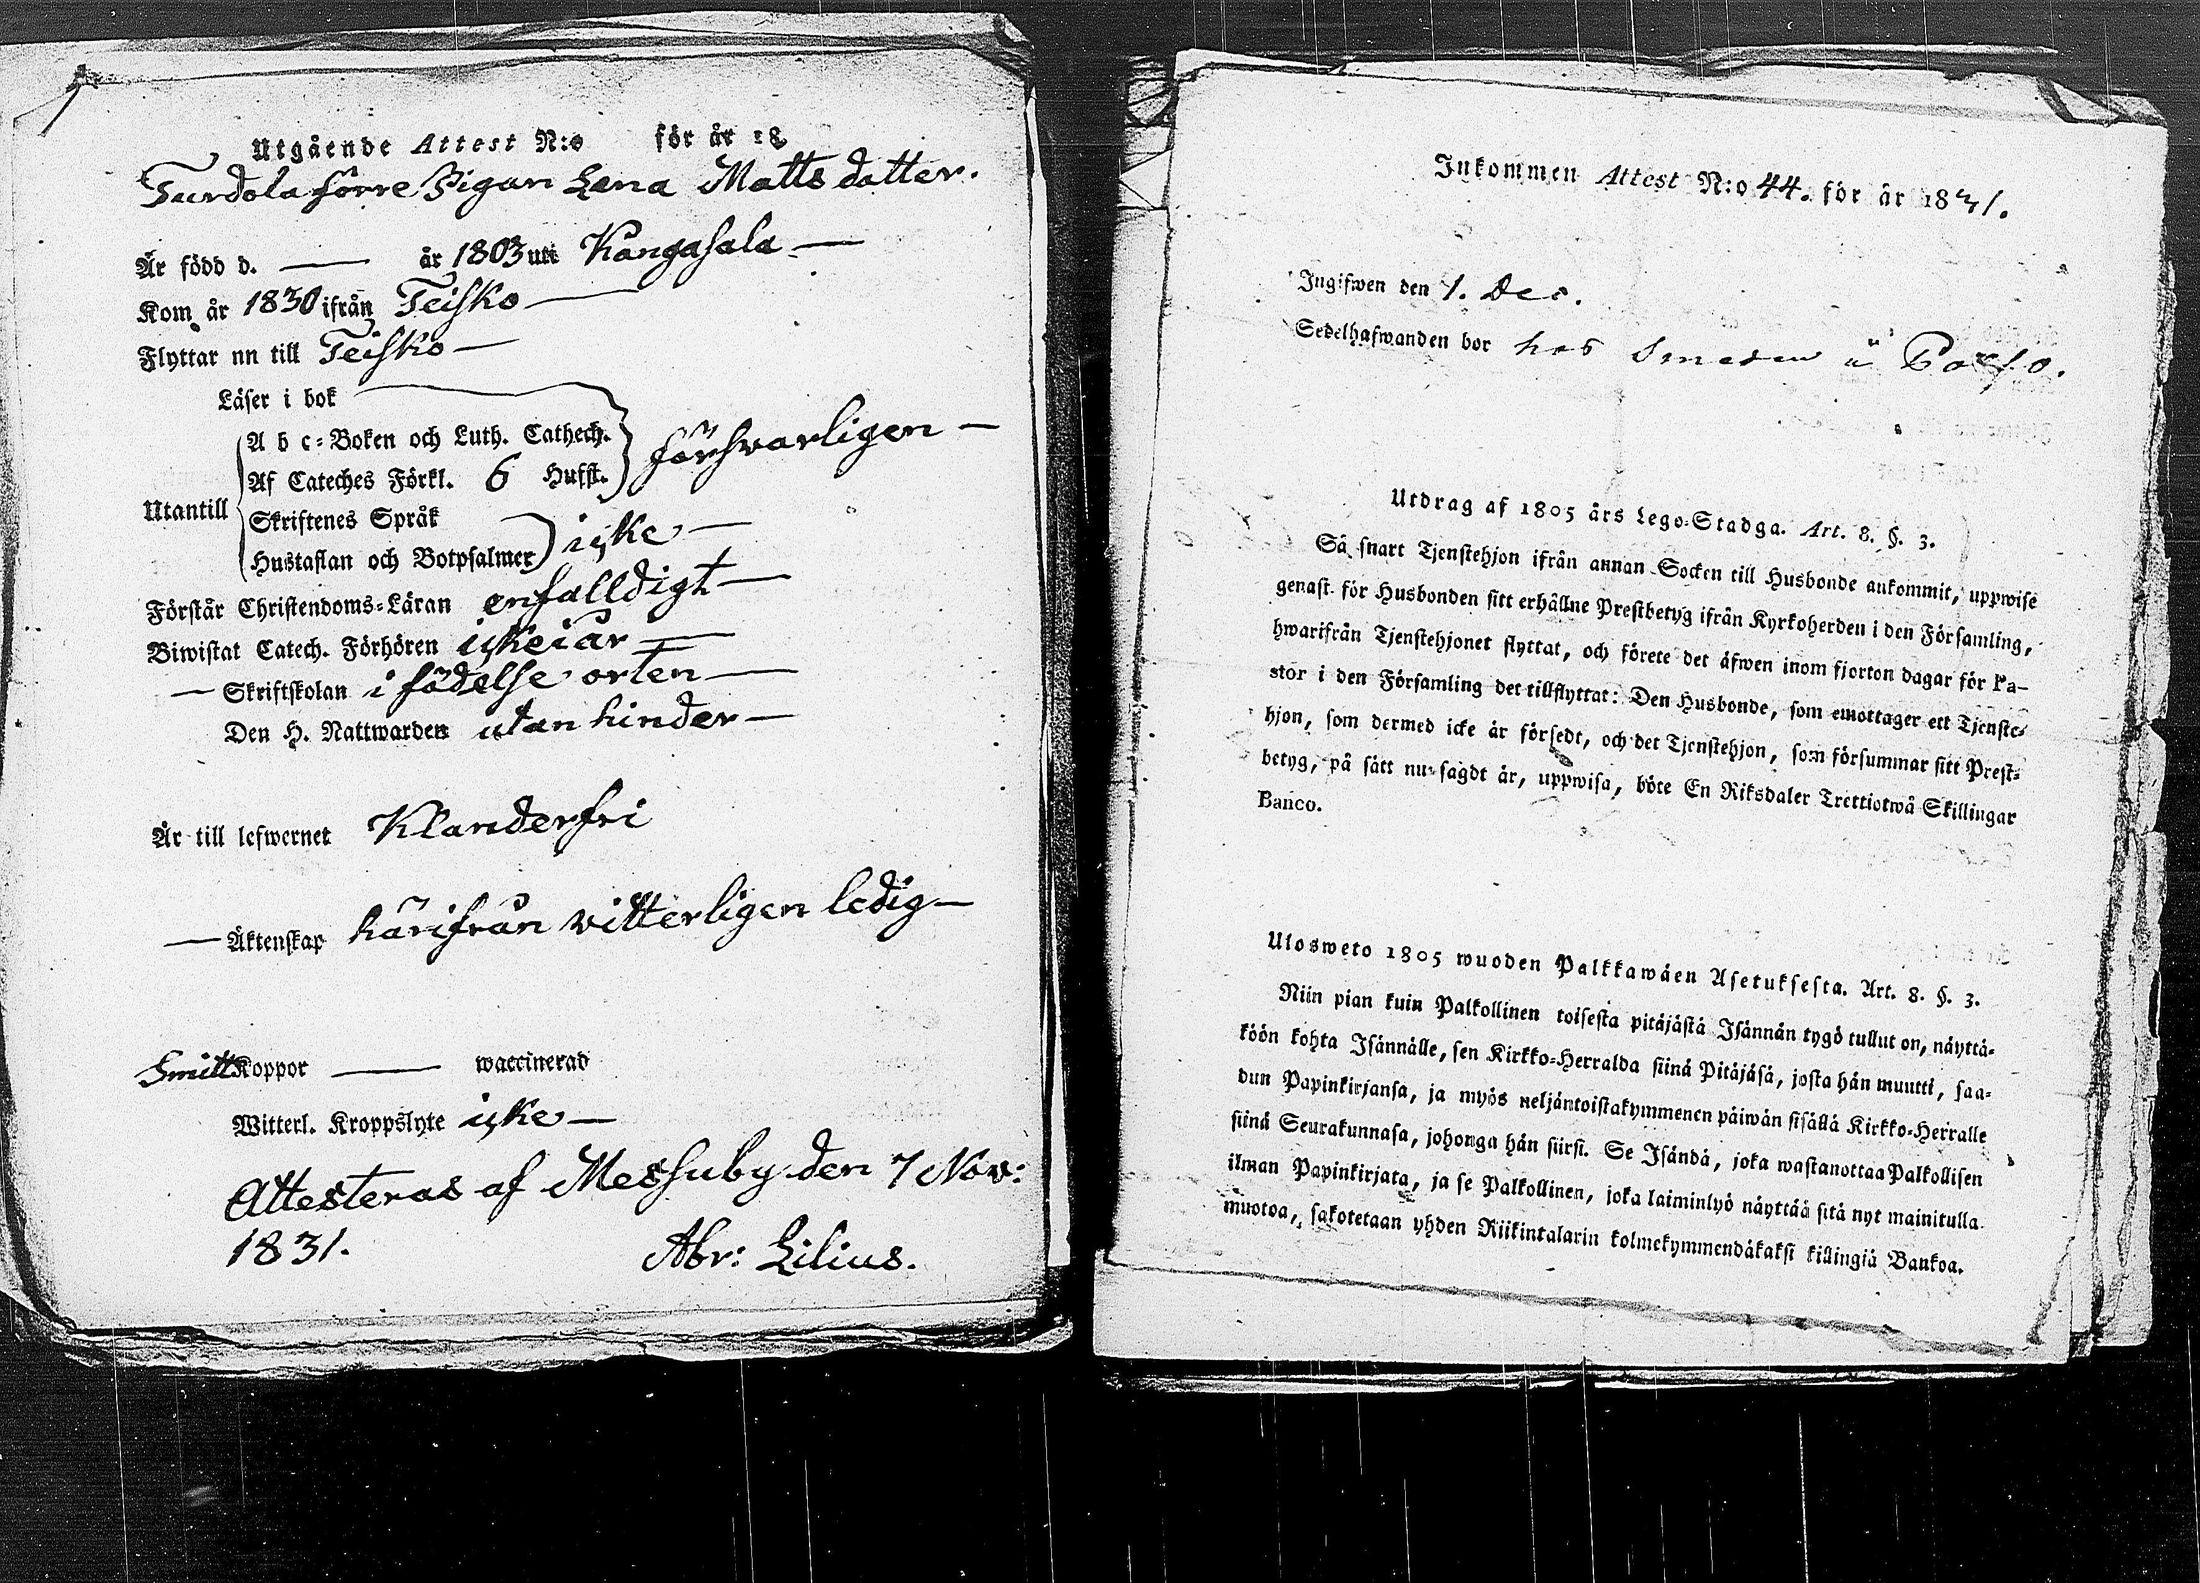 Utgående Attest N:o för år 18
Turdola förre Pigan Lena Matts datter.
Är född d. — år 1803 uti Kangasala —
Kom år 1830 ifrån Teisko —
Flyttar nu till Teisko —
Läser i bok
A b c-Boken och Luth. Cathech.
försvarligen —
Af Cateches Förkl. 6 Hufst.
Utantill
Skriftenes Språk
icke —
Hustaflan och Botpsalmer
Förstår Christendoms-Läran enfalldigt —
Biwistat Catech. Förhören icke i år —
— Skriftskolan i födelse orten —
Den H. Nattwarden utan hinder —
Är till lefwernet Klanderfri
— Äktenskap härifrån vitterligen ledig —
Smitt Koppor — waccinerad
Witterl. Kroppslyte icke —
Attesteras af Messuby den 7 Nov:
1831. Abr: Lilius.
Inkommen Attest N:o 44. för år 1831.
Ingifwen den 1. Dec.
Sedelhafwanden bor hos Smeden å
Utdrag af 1805 års Lego-Stadga. Art. 8. §. 3.
Så snart Tjenstehjon ifrån annan Socken till Husbonde ankommit, uppwise
genast för Husbonden sitt erhållne Prestbetyg ifrån Kyrkoherden i den Församling,
hwarifrån Tjenstehjonet flyttat, och förete det äfwen inom fjorton dagar för Pa-
stor i den Församling det tillflyttat: Den Husbonde, som emottager ett Tjenste-
hjon, som dermed icke är försedt, och det Tjenstehjon, som försummar sitt Prest-
betyg, på sätt nu sagdt är, uppwisa, böte En Riksdaler Trettiotwå Skillingar
Banco.
Ulosweto 1805 wuoden Palkkawäen Asetuksesta. Art. 8. §. 3.
Niin pian kuin Palkollinen toisesta pitäjästä Isännän tygö tullut on, näyttä-
köön kohta Isännälle, sen Kirkko-Herralda siinä Pitäjäsä, josta hän muutti, saa-
dun Papinkirjansa, ja myös neljäntoistakymmenen päiwän sisällä Kirkko-Herralle
siinä Seurakunnasa, johonga hän siirsi. Se Isändä, joka wastanottaa Palkollisen
ilman Papinkirjata, ja se Palkollinen, joka laiminlyö näyttää sitä nyt mainitulla
muotoa, sakotetaan yhden Riikintalarin kolmekymmendäkaksi killingiä Bankoa.